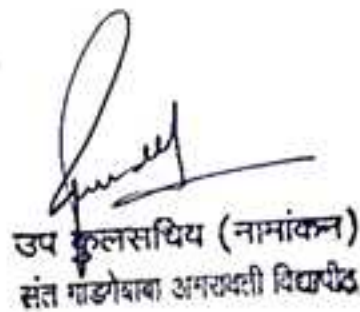 उप कुलसचिव (नामांकन)
संत गाडगेबाबा अमरावती विद्यापीठ